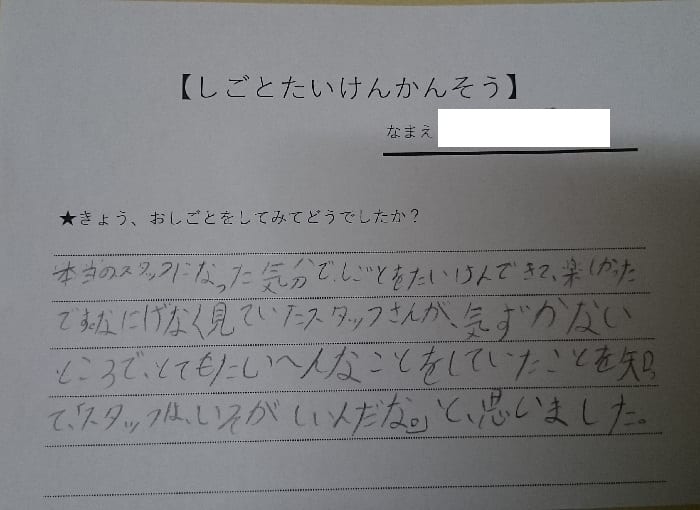 【しごとたいけんかんそう】
なまえ
★きょう、おしごとをしてみてどうでしたか？
本当のスタッフになった気分で、しごとをたいけんできて、楽しかった
です。なにげなく見ていたスタッフさんが、気ずかない
ところで、とてもたいへんなことをしていたことを知っ
て、「スタッフは、いそがしいんだな。」と、思いました。